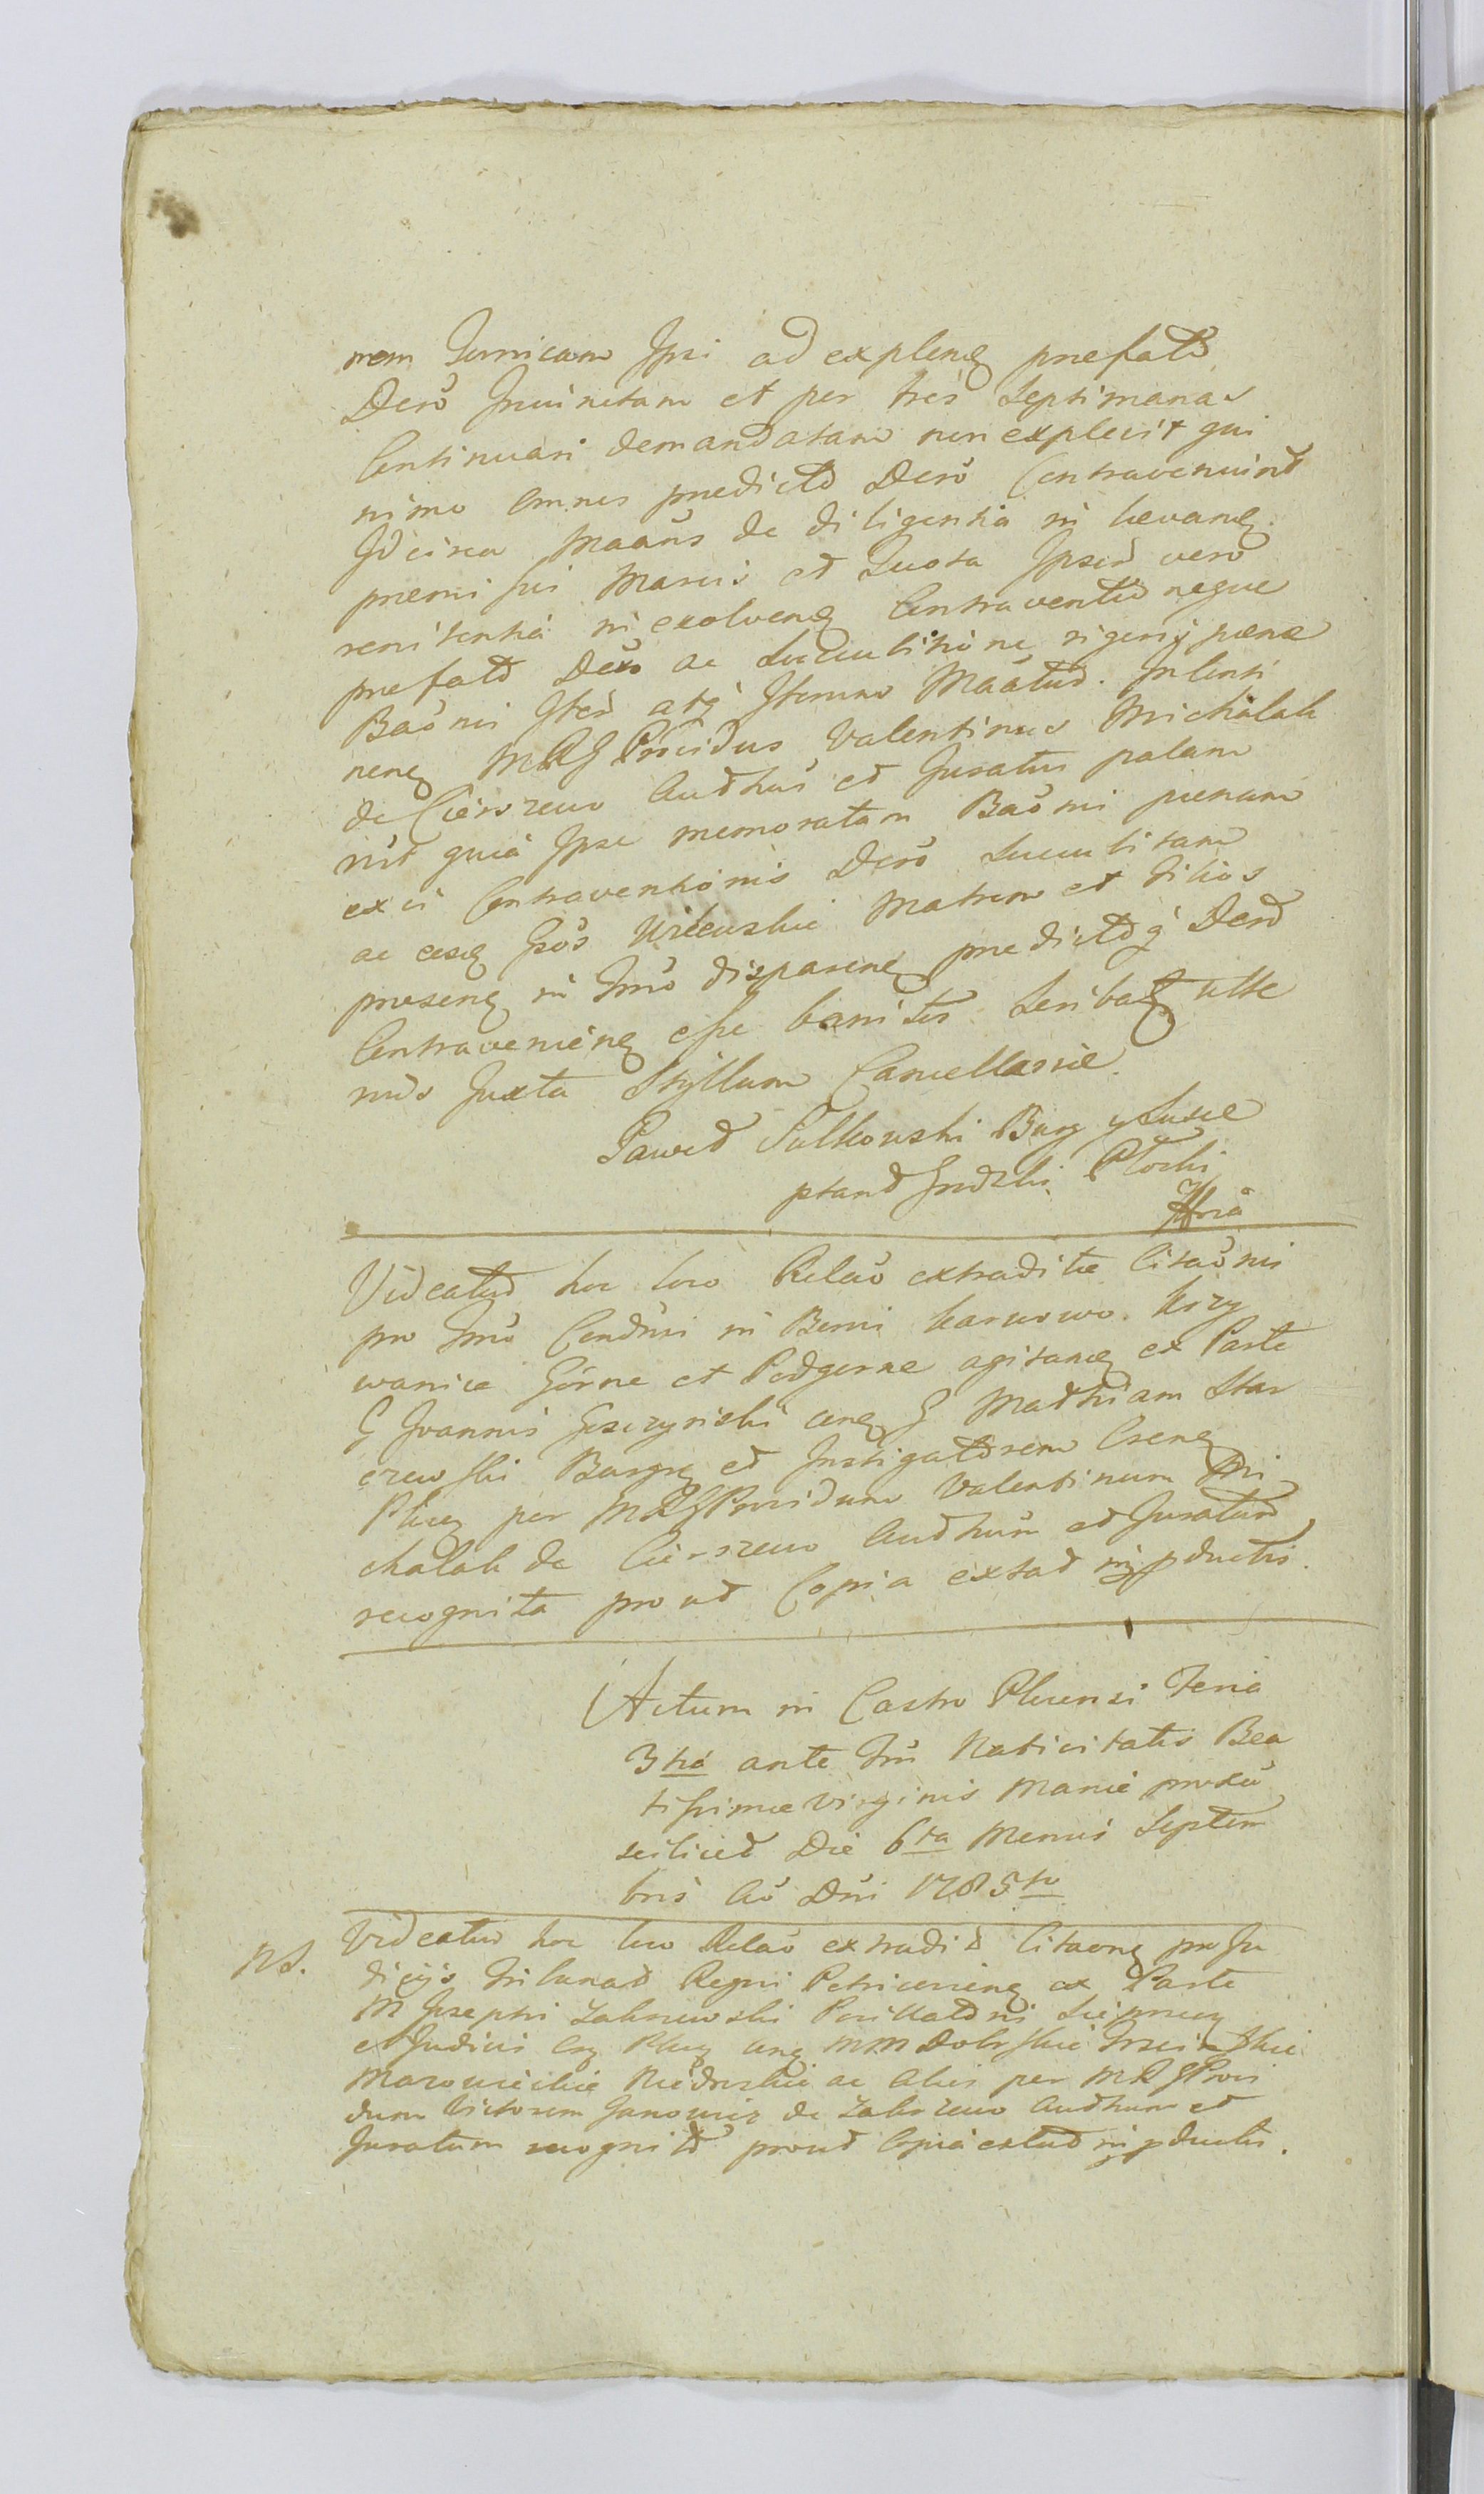 nem Turricam Ipsi ad explenq prefato
Dero Iniunctam et per tres Septimanas
Continuari demandatam non explevit qui
nimo omnes predicto Dero Contravenuint
Idcirco Maaus de diligentia in levanq
premissi Marcis et Quota Ipsid vero
renitentia in exolvenq Contraventio neque
prefato Dero ac Succubitione rigorij pænæ
Baonis Iter atq Iterum Maatud. In Conti
nenq MRG Providus Valentinus Michalak
de Cierszewo Authus et Juratus palam
nit quia Ipse memoratam Baonis pænam
ex vi Contraventionis Dero Succubitam
ac eosq Gsos Matrem et Filios
presenq in Tmo disparenq predictoq Dero
Contravenienq esse banitos Scribatq ulte
rius Juxta Styllum Cancellariæ.
Paweł Sulkowski Burg y Susce
ptant Grodzki Płocki
Videatur hoc loco Relao extraditæ Citaonis
pro Tmo Condusi in Bonis Karwowo. Krzy
wanice Górne et Podgorne agitanq ex Parte
G Joannis Goszczynski cong G Mathiam Star
czewski Burgq et Instigatorem Csenq
Plocq per MRG Providum Valentinum Mi
chalak de Cierszewo Authum et Juratum
recognita prout Copia extat in pductis.
Actum in Castro Plocensi Feria
3tia ante Fm Nativitatis Bea
tissimæ Virginis Mariæ proxa
scilicet Die 6ta Mensis Septem
bris Ao Dni 1785to
NS. Videatur hoc loco Relao extradit Citaonq pro Ju
dicijs Tribunal Regni Petricovienq ex Parte
M Josephi Zalinewski Pocillatoris Sieprecq
et Judicis Plocq cong MM Dobrskie
Marowieckie ac Alios per MRG Provi
dum Victorem Janowicz de Authum et
Juratum recognit prout Copia extat in pductis.